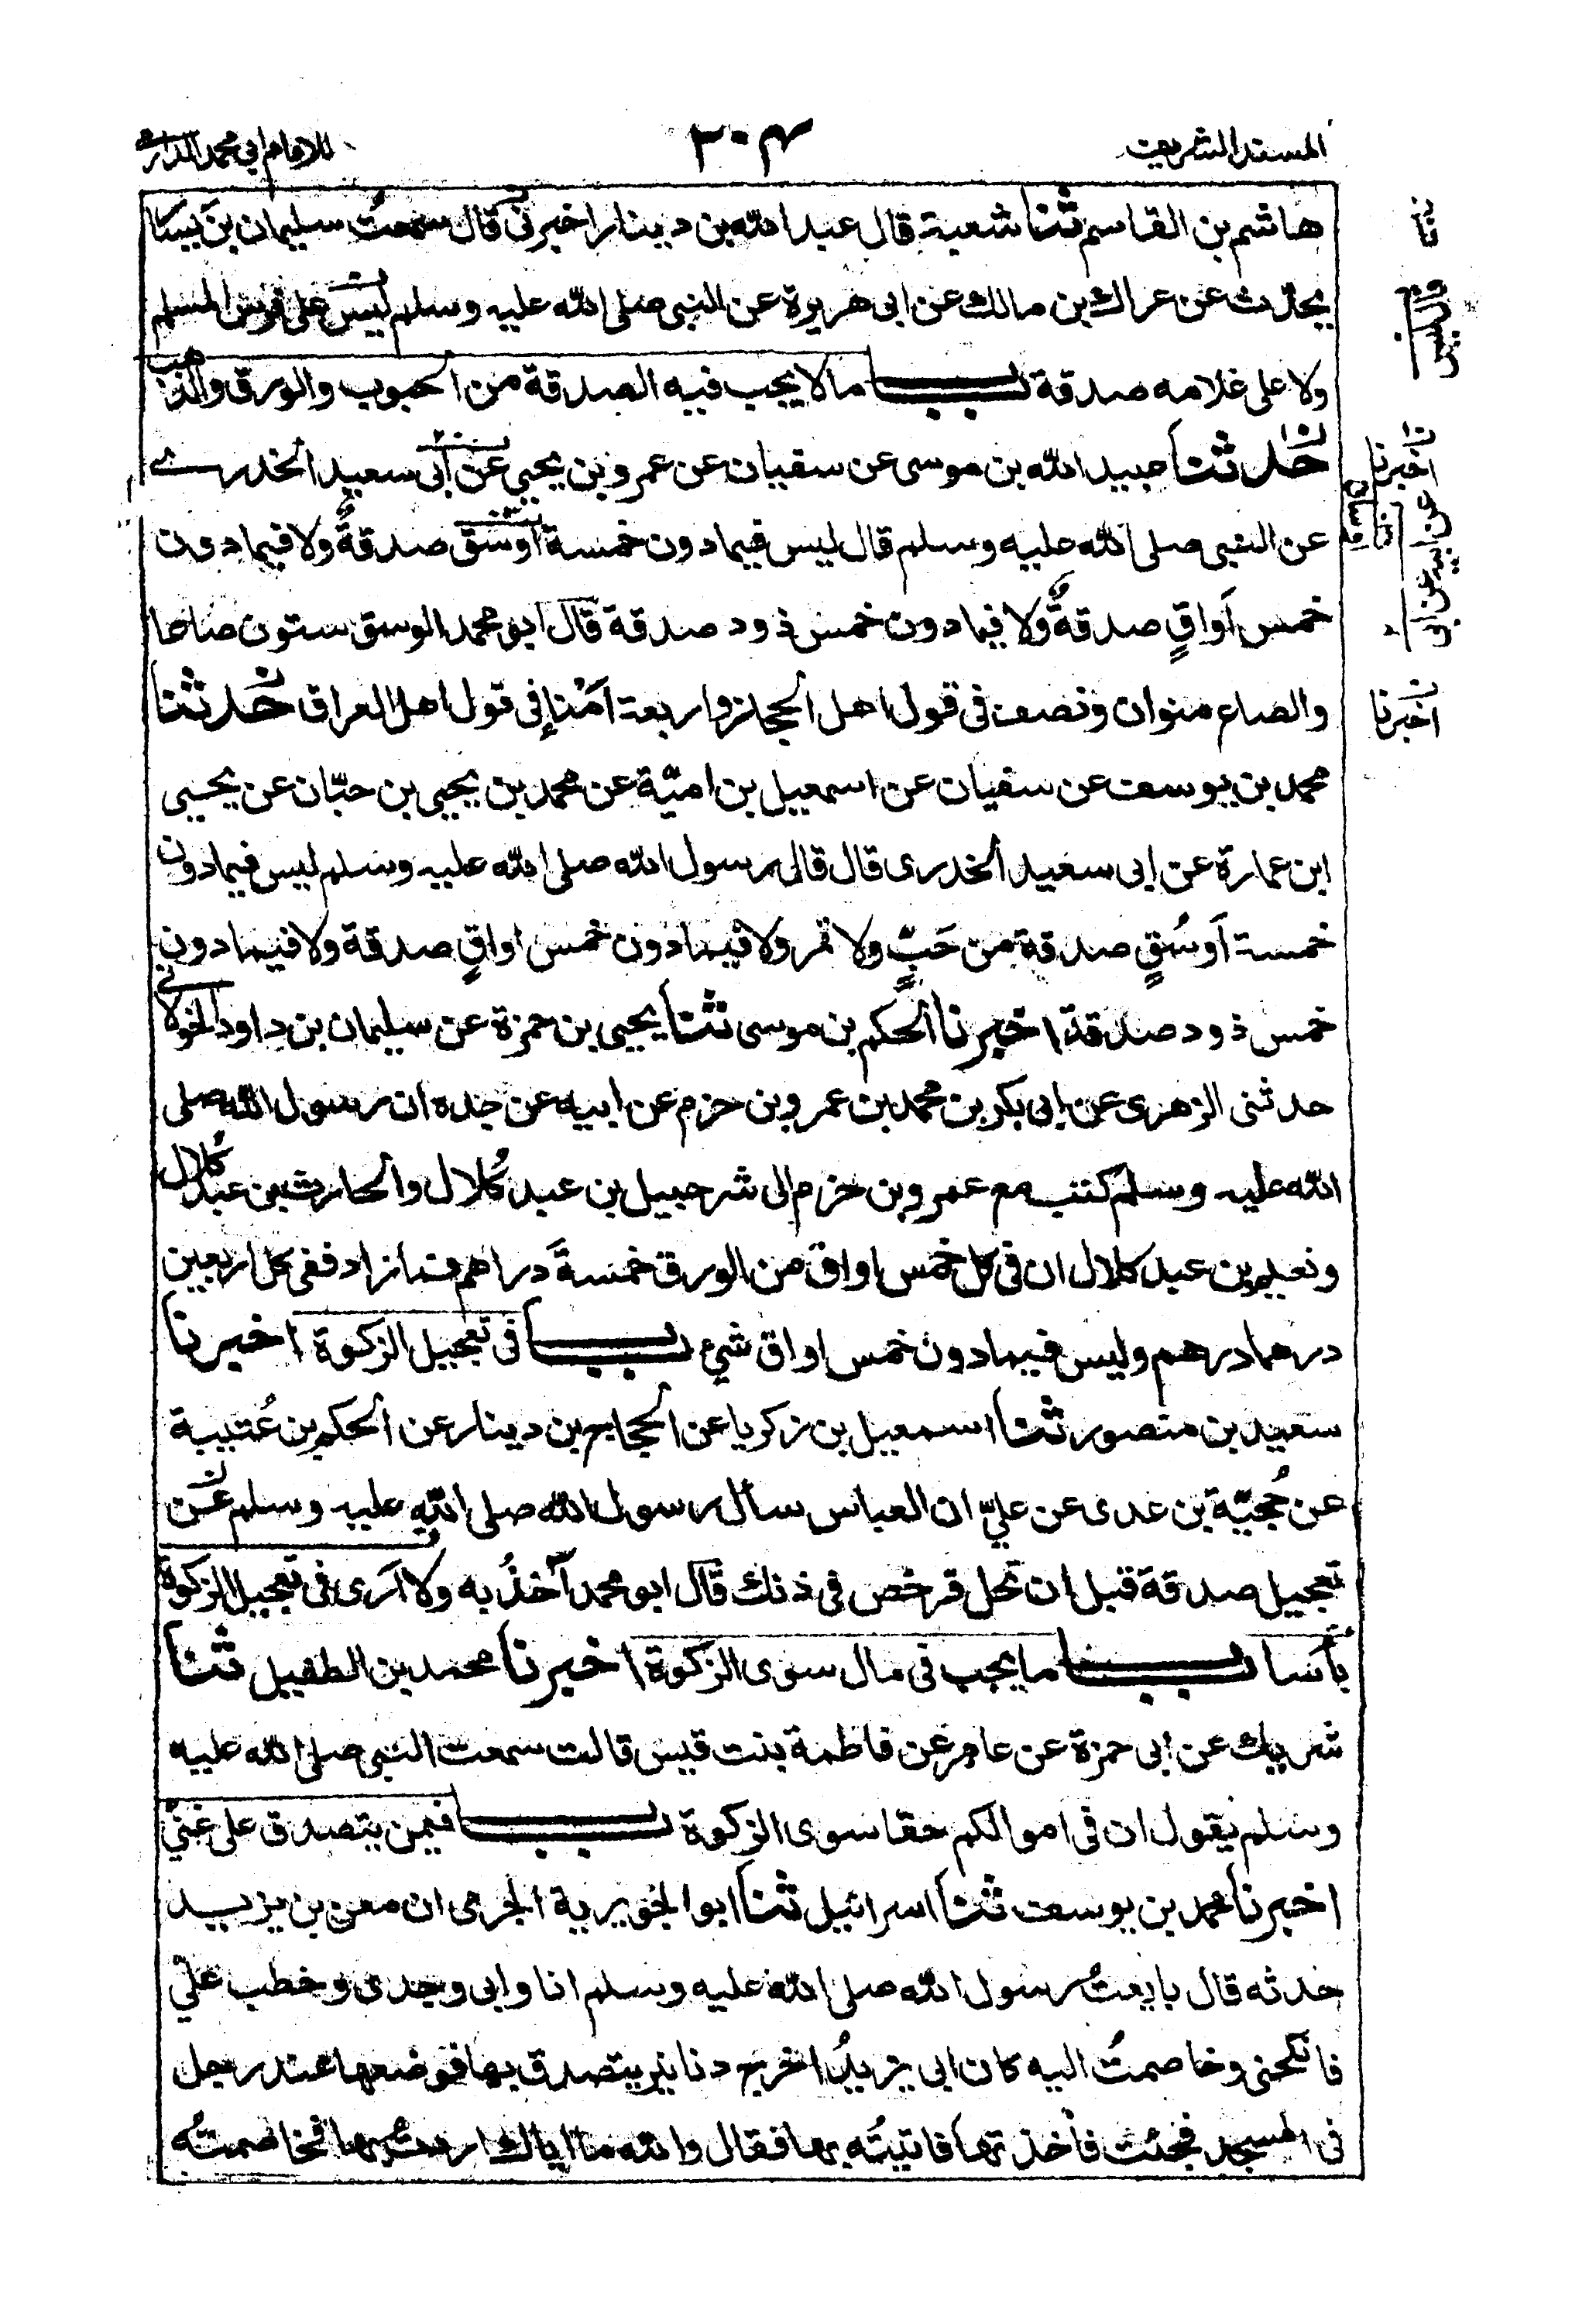 المسند الشريف
٣٠٤
للامام ابي محمد الدارمي
هاشم بن القاسم ثنا شعبة قال عبد الله بن دينار اخبرني قال سمعت سليمان بن يسار
يحدّث عن عراك بن مالك عن ابى هريرة عن النبى صلى الله عليه وسلم ليس على فرس المسلم
ولا على غلامه صدقة باب ما لا يجب فيه الصدقة من الحبوب والورق والذهب
حدثنا عبيد الله بن موسى عن سفيان عن عمرو بن يحيى عن ابى سعيد الخدرى
عن النبى صلى الله عليه وسلم قال ليس فيما دون خمسة اوسق صدقةٌ ولا فيما دون
خمس اَواقٍ صدقةٌ ولا فيما دون خمس ذود صدقة قال ابو محمد الوسق ستون صاعا
والصاع منوان ونصف فى قول اهل الحجاز واربعة اَمْناءٍ فى قول اهل العراق حدثنا
محمد بن يوسف عن سفيان عن اسمعيل بن اميّة عن محمد بن يحيى بن حبّان عن يحيى
ابن عمارة عن ابى سعيد الخدرى قال قال رسول الله صلى الله عليه وسلم ليس فيما دون
خمسة اَوسُقٍ صدقة من حَبٍّ ولا تمر ولا فيما دون خمس اواقٍ صدقة ولا فيما دون
خمس ذود صدقة اخبرنا الحكم بن موسى ثنا يحيى بن حمزة عن سليمان بن داود الخولانى
حدثنى الزهرى عن ابى بكر بن محمد بن عمرو بن حزم عن ابيه عن جده ان رسول الله صلى
الله عليه وسلم كتب مع عمرو بن حزم الى شرحبيل بن عبد كُلال والحارث بن عبد كُلال
ونعيم بن عبد كلال ان فى كل خمس اواق من الورق خمسةَ دراهم فما زاد ففى كل اربعين
درهما درهم وليس فيما دون خمس اواق شئ باب فى تعجيل الزكوة اخبرنا
سعيد بن منصور ثنا اسمعيل بن زكريا عن الحجاج بن دينار عن الحكم بن عُتيبة
عن حُجيّة بن عدى عن علىٍّ ان العباس سأل رسول الله صلى الله عليه وسلم عن
تعجيل صدقة قبل ان تحل فرخص فى ذلك قال ابو محمد آخذُ به ولا ارى فى تعجيل الزكوة
بأسا باب ما يجب فى مال سوى الزكوة اخبرنا محمد بن الطفيل ثنا
شريك عن ابى حمزة عن عامر عن فاطمة بنت قيس قالت سمعت النبى صلى الله عليه
وسلم يقول ان فى اموالكم حقا سوى الزكوة باب فيمن يتصدق على غنىّ
اخبرنا محمد بن يوسف ثنا اسرائيل ثنا ابو الجويرية الجرمى ان معن بن يزيد
حدثه قال بايعتُ رسول الله صلى الله عليه وسلم انا وابى وجدى وخطب علىّ
فانكحنى وخاصمتُ اليه كان ابى يزيدُ اخرج دنانير يتصدق بها فوضعها عند رجل
فى المسجد فجئت فأخذتها فاتيتُه بها فقال والله ما اياك اردتُ بها فخاصمتُه
ثنا
اخبرنا
عن ابيه عن ابى
اخبرنا